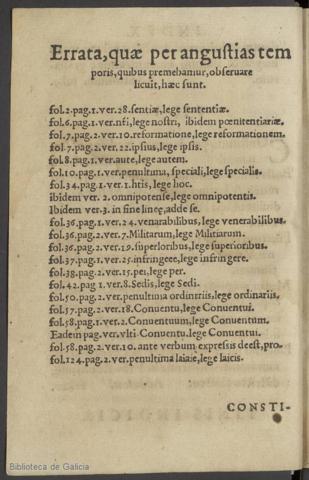 Errata, quæ per angustias tem
poris, quibus premebamur, obseruare
licuit, hæc sunt.
fol.2.pag.1.ver.28.sentiæ, lege sententiæ.
fol.6.pag.1.ver.nfi, lege nostri, ibidem pœnitentiariæ.
fol.7.pag.2.ver.10.reformatione, lege reformationem.
fol.7.pag.2.ver.22.ipsius, lege ipsis.
fol.8.pag.1.ver.aute, lege autem.
fol.10.pag.1.ver.penultima, speciali, lege specialis.
fol.34.pag.1.ver.1.htis, lege hoc.
ibidem ver.2.omnipotense, lege omnipotentis.
Ibidem ver.3. in fine lineę, adde se.
fol.36.pag.1.ver.24.venarabilibus, lege venerabilibus.
fol.36.pag.2.ver.7.Militarum, lege Militiarum.
fol.36.pag.2.ver.19.superloribus, lege superioribus.
fol.37.pag.1.ver.25.infringeee, lege infringere.
fol.38.pag.2.ver.15.pei, lege per.
fol.42.pag 1.ver.8.Sedis, lege Sedi.
fol.50.pag.2.ver.penultima ordinriis, lege ordinariis.
fol.57.pag.2.ver.18.Conuentu, lege Conuentui.
fol.58.pag.1.ver.2.Conuentuum, lege Conuentum.
Eadein pag.ver.vlti. Conuentu. lege Conuentui.
fol.58.pag.2.ver.10. ante verbum expressis deest, pro.
fol.124.pag.2.ver.penultima laiaie, lege laicis.
CONSTI-
Biblioteca de Galicia